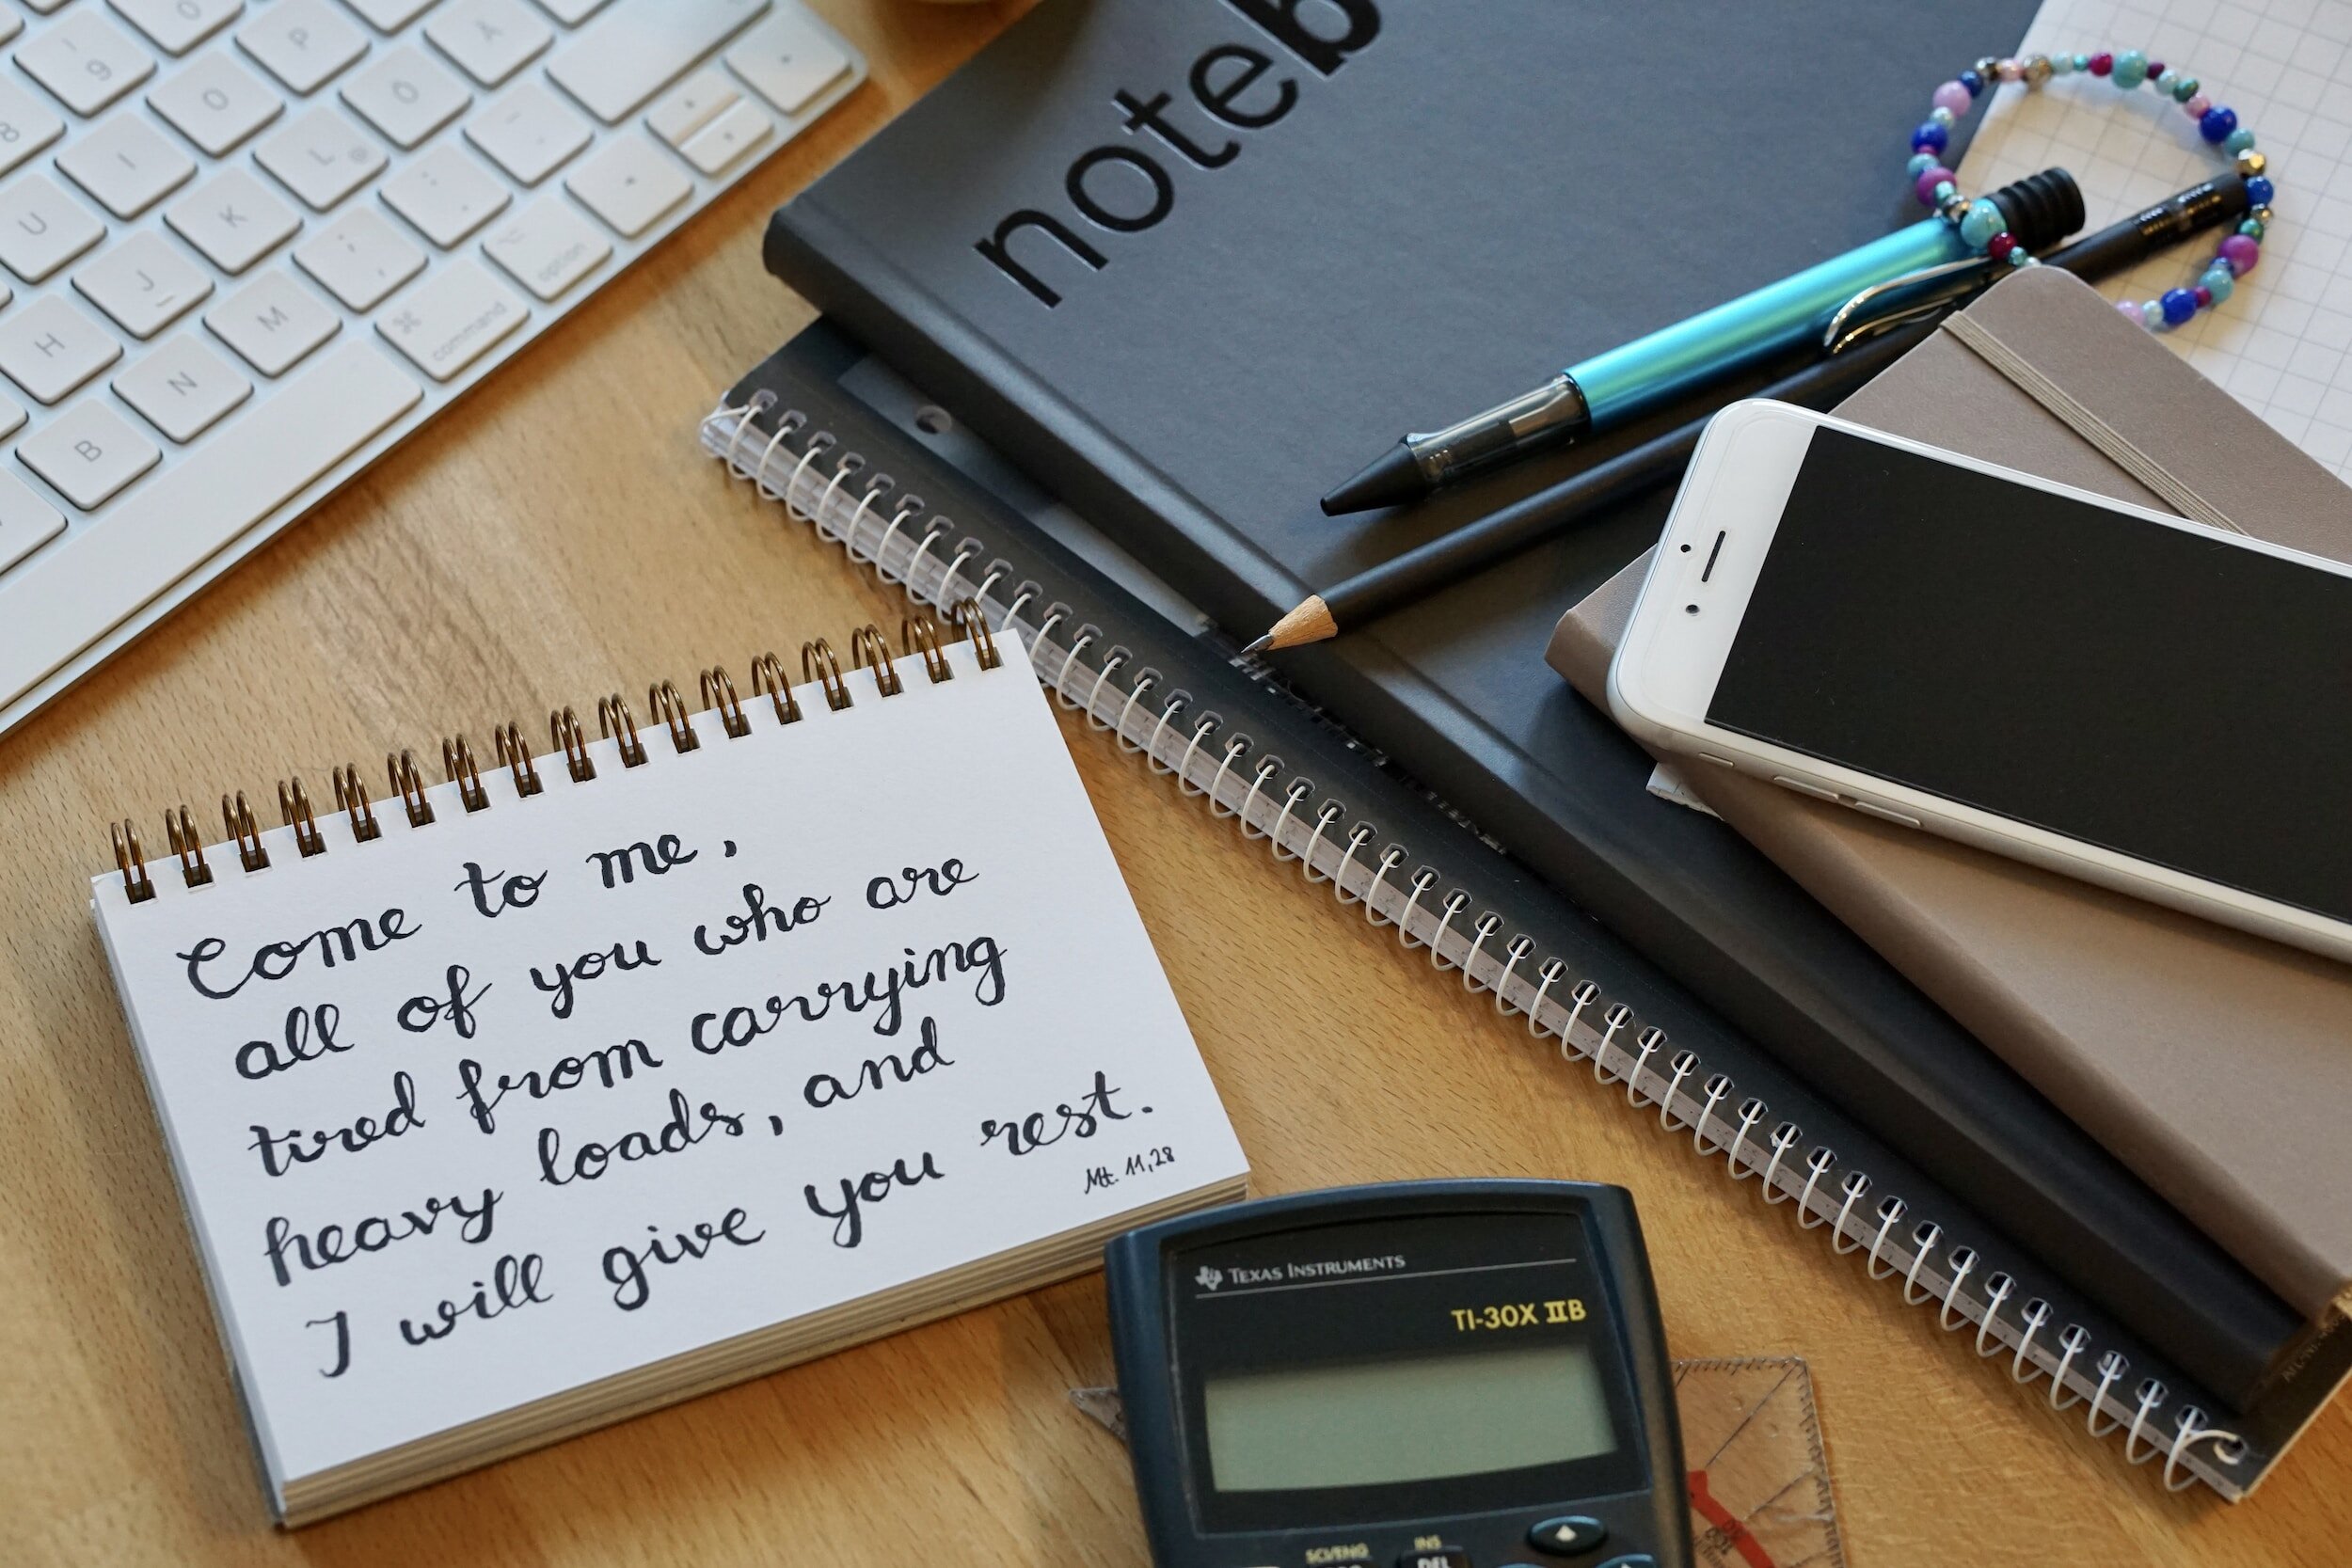 9
P
Å
O
Ö
8
I
L @
U
K
option
J
M
command
H
N
B
noteb
Come to me,
all of you who are
tired from carrying
heavy loads, and
I will give you rest.
Mt. 11,28
TEXAS INSTRUMENTS
TI-30X IIB
SCI/ENG INS
DEL